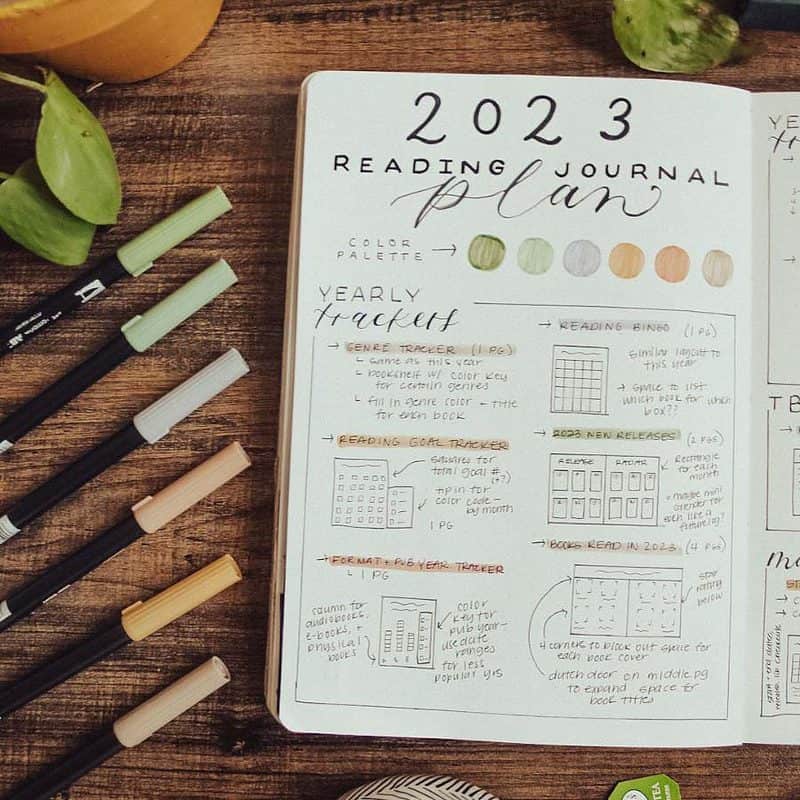 2023
READING JOURNAL
plan
COLOR
PALETTE →
YEARLY
trackers
→ GENRE TRACKER (1 PG)
↳ same as this year
↳ bookshelf w/ color key
for certain genres
↳ fill in genre color - title
for each book
→ READING GOAL TRACKER
squares for
total goal #
(+?)
tip in for
color code -
by month
1 PG
→ FORMAT + PUB YEAR TRACKER
↳ 1 PG
column for
audiobooks,
e-books, +
physical
books
color
key for
pub year -
use date
ranges
for less
popular yrs
→ READING BINGO (1 PG)
similar layout to
this year
→ space to list
which book for which
box??
→ 2023 NEW RELEASES (2 PGS)
RELEASE
RADAR
Rectangle
for each
month
maybe mini
calendar for
each like a
future log?
→ BOOKS READ IN 2023 (4 PGS)
star
rating
below
4 corners to block out space for
each book cover
dutch door on middle pg
to expand space for
book titles
YE
tr
TB
TEA